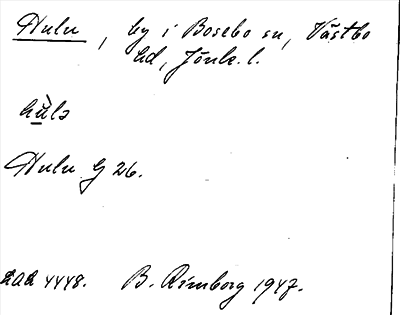 Hulu, by i Bosebo sn, Västbo
hd, Jönk. l.
hùlə
Hulu G 26.
LAL 4448. B. Rimborg 1947.